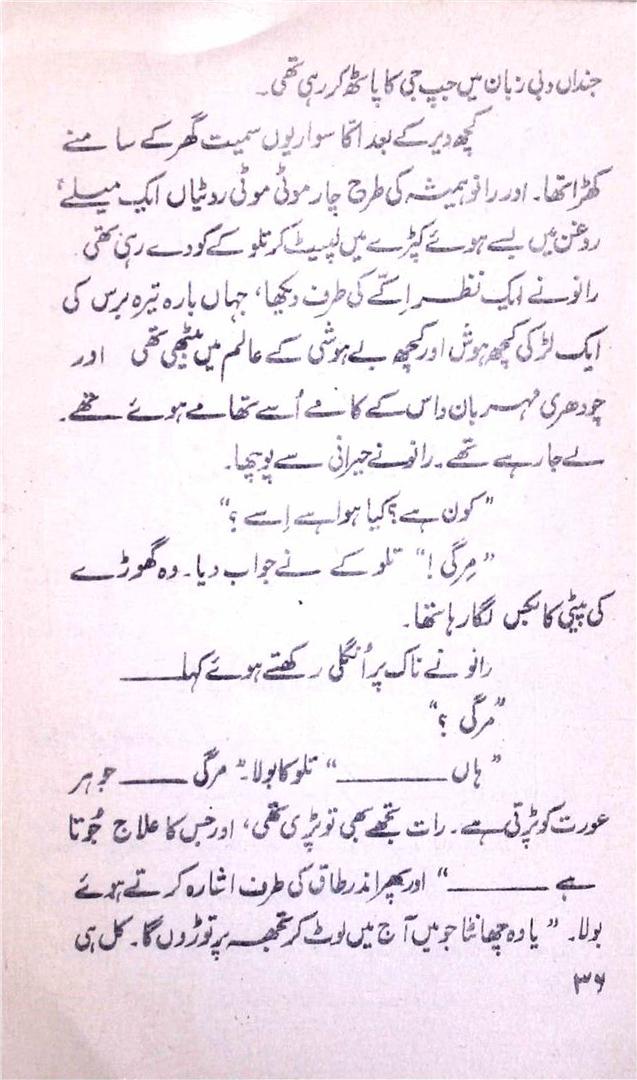 جنداں دبی زبان میں جپ جی کا پاٹھ کر رہی تھی۔
کچھ دیر کے بعد اکا سواریوں سمیت گھر کے سامنے
کھڑا تھا۔ اور رانو ہمیشہ کی طرح چار موٹی موٹی روٹیاں ایک میلے،
روغن میں بسے ہوئے کپڑے میں لپیٹ کر تلوکے کو دے رہی تھی
رانو نے ایک نظر اِکّے کی طرف دیکھا، جہاں بارہ تیرہ برس کی
ایک لڑکی کچھ ہوش اور کچھ بے ہوشی کے عالم میں بیٹھی تھی اور
چودھری مہربان داس کے کامے اُسے تھامے ہوئے تھے۔
لے جا رہے تھے۔ رانو نے حیرانی سے پوچھا۔
"کون ہے؟ کیا ہوا ہے اِسے ؟"
"مِرگی !" تلوکے نے جواب دیا۔ وہ گھوڑے
کی پیٹی کا بکس لگا رہا تھا۔
رانو نے ناک پر اُنگلی رکھتے ہوئے کہا ———
"مرگی ؟"
"ہاں ———" تلوکا بولا۔ "مرگی ——— جو ہر
عورت کو پڑتی ہے۔ رات تجھے بھی تو پڑی تھی، اور جس کا علاج جُوتا
ہے ———" اور پھر اندر طاق کی طرف اشارہ کرتے ہوئے
بولا۔ "یا وہ چھانٹا جو میں آج میں لوٹ کر تجھ پر توڑوں گا۔ کل ہی
۳۶